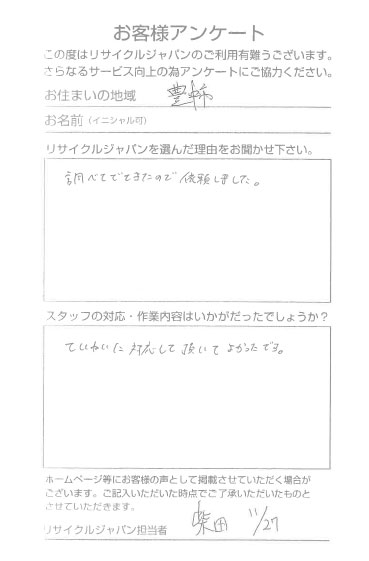 お客様アンケート
この度はリサイクルジャパンのご利用有難うございます。
さらなるサービス向上の為アンケートにご協力ください。
お住まいの地域 豊中市
お名前（イニシャル可）
リサイクルジャパンを選んだ理由をお聞かせ下さい。
調べてでてきたので依頼しました。
スタッフの対応・作業内容はいかがだったでしょうか？
ていねいに対応して頂いてよかったです。
ホームページ等にお客様の声として掲載させていただく場合が
ございます。ご記入いただいた時点でご了承いただいたものと
させていただきます。
リサイクルジャパン担当者 柴田 11/27